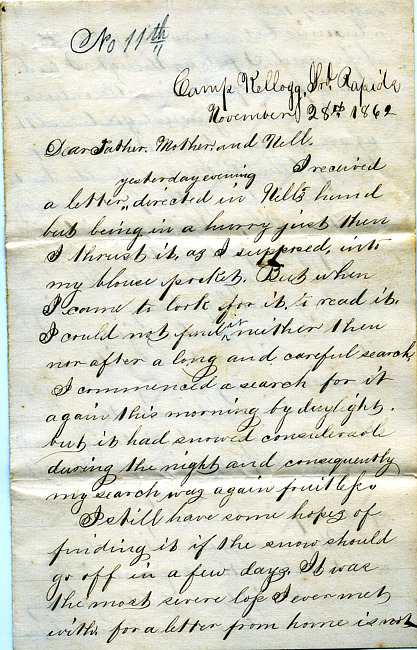 No 11th
Camp Kellogg, Grd Rapids
November 28th 1862
Dear Father, Mother, and Nell.
yesterday evening I received
a letter, directed in Nell's hand
but being in a hurry just then
I thrust it, as I supposed, into
my blouse pocket. But when
I came to look for it, to read it,
I could not find it neither then
nor after a long and careful search,
I commenced a search for it
again this morning by daylight.
but it had snowed considerable
during the night and consequently
my search was again fruitless
I still have some hopes of
finding it if the snow should
go off in a few days. It was
the most severe loss I ever met
with. for a letter from home is not